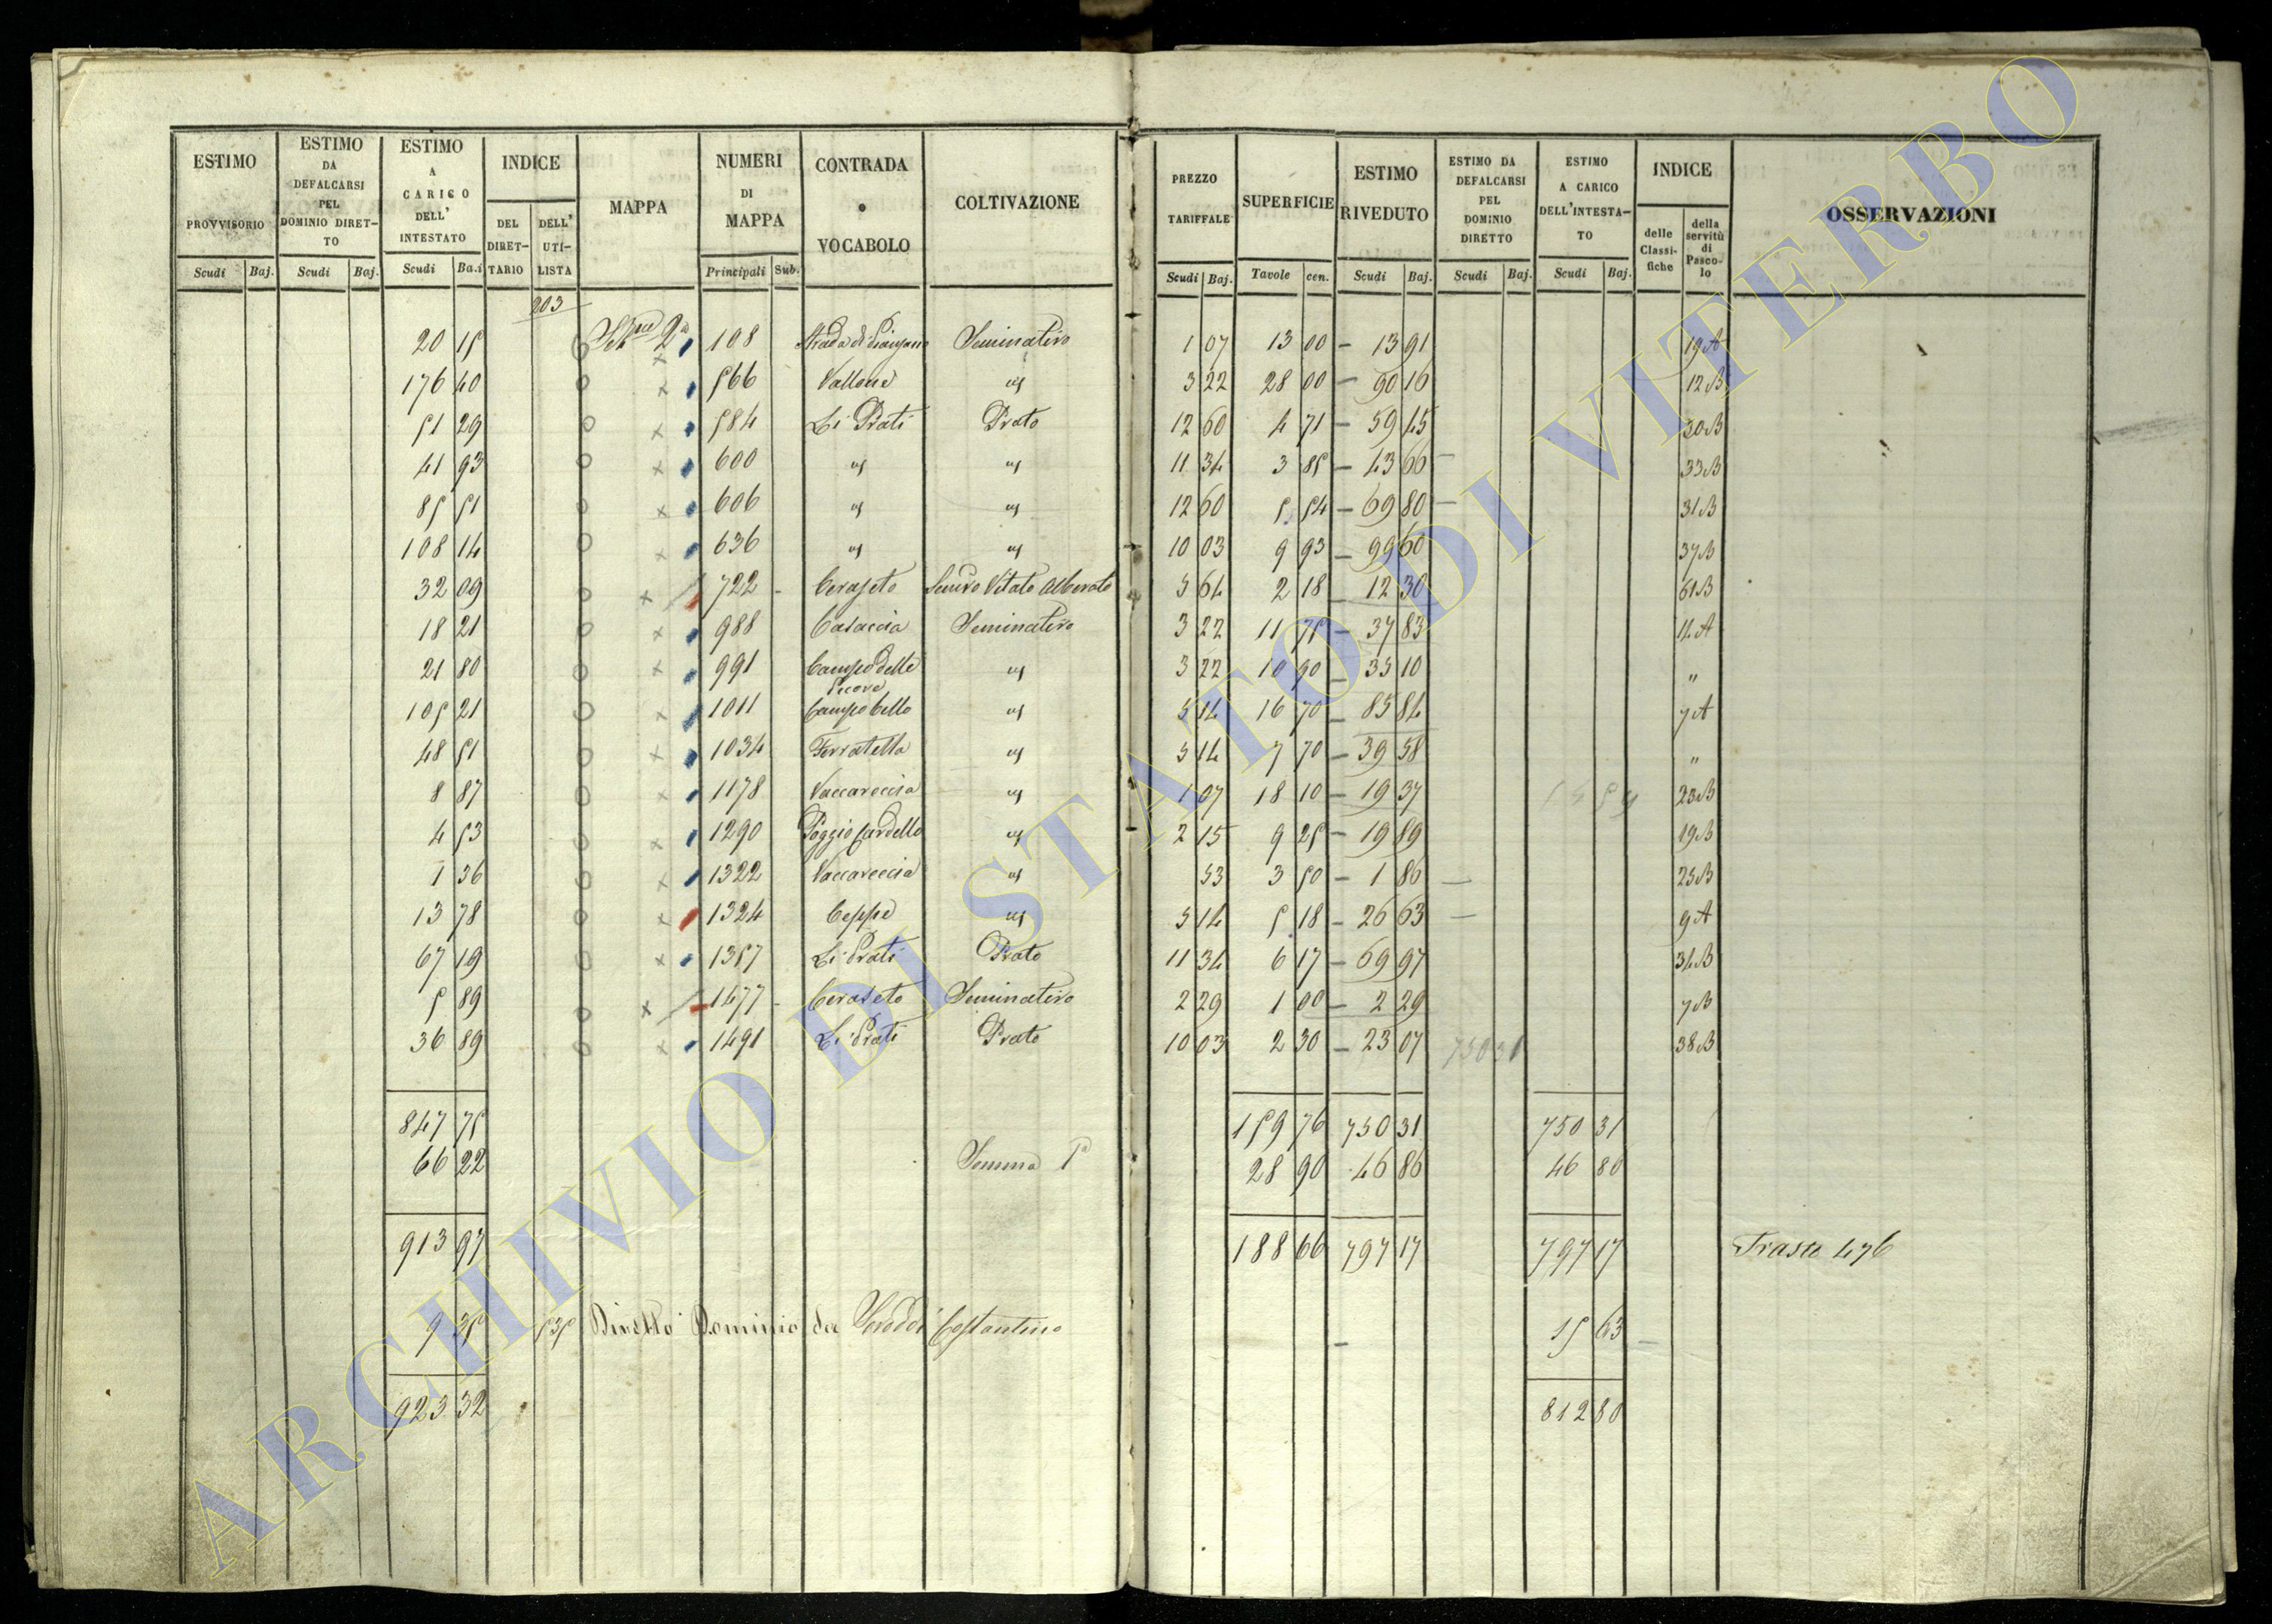 ESTIMO PROVVISORIO Scudi Baj.
ESTIMO DA DEFALCARSI PEL DOMINIO DIRETTO Scudi Baj.
ESTIMO A CARICO DELL' INTESTATO Scudi Ba.i
INDICE DEL DIRETTARIO DELL' UTILISTA
MAPPA
NUMERI DI MAPPA Principali Sub.
CONTRADA o VOCABOLO
COLTIVAZIONE
PREZZO TARIFFALE Scudi Baj.
SUPERFICIE Tavole cen.
ESTIMO RIVEDUTO Scudi Baj.
ESTIMO DA DEFALCARSI PEL DOMINIO DIRETTO Scudi Baj.
ESTIMO A CARICO DELL'INTESTATO Scudi Baj.
INDICE delle Classifiche della servitù di Pascolo
OSSERVAZIONI
203
20 15 Sene 2a 108 Strada di Pianzano Seminativo 1 07 13 00 — 13 91 19A
176 40 566 Vallone " 3 22 28 00 — 90 16 12B
51 29 584 Li Prati Prato 12 60 4 71 — 59 45 30B
41 93 600 " " 11 34 3 85 — 43 66 33B
85 51 606 " " 12 60 5 54 — 69 80 31B
108 14 636 " " 10 03 9 93 — 99 60 37B
32 09 722 Ceraseto Semivo Vitato Alberato 5 64 2 18 — 12 30 61B
18 21 988 Casaccia Seminativo 3 22 11 75 — 37 83 14A
21 80 991 Campo delle Pecore " 3 22 10 90 — 35 10 "
105 21 1011 Campo bello " 5 14 16 70 — 85 84 7A
48 51 1034 Ferratella " 5 14 7 70 — 39 58 "
8 87 1178 Vaccareccia " 1 07 18 10 — 19 37 23B
4 53 1290 Poggio Cardello " 2 15 9 25 — 19 89 19B
1 36 1322 Vaccareccia " 53 3 50 — 1 86 25B
13 78 1324 Ceppe " 5 14 5 18 — 26 63 9A
67 19 1357 Li Prati Prato 11 34 6 17 — 69 97 34B
5 89 1477 Ceraseto Seminativo 2 29 1 00 — 2 29 7B
36 89 1491 Li Prati Prato 10 03 2 30 — 23 07 750 31 38B
847 75 159 76 750 31 750 31
66 22 Somma 28 90 46 86 46 86
913 97 188 66 797 17 797 17 Trasto 476
9 35 535 Diretto Dominio da Costantino 15 63
923 32 812 80
ARCHIVIO DI STATO DI VITERBO